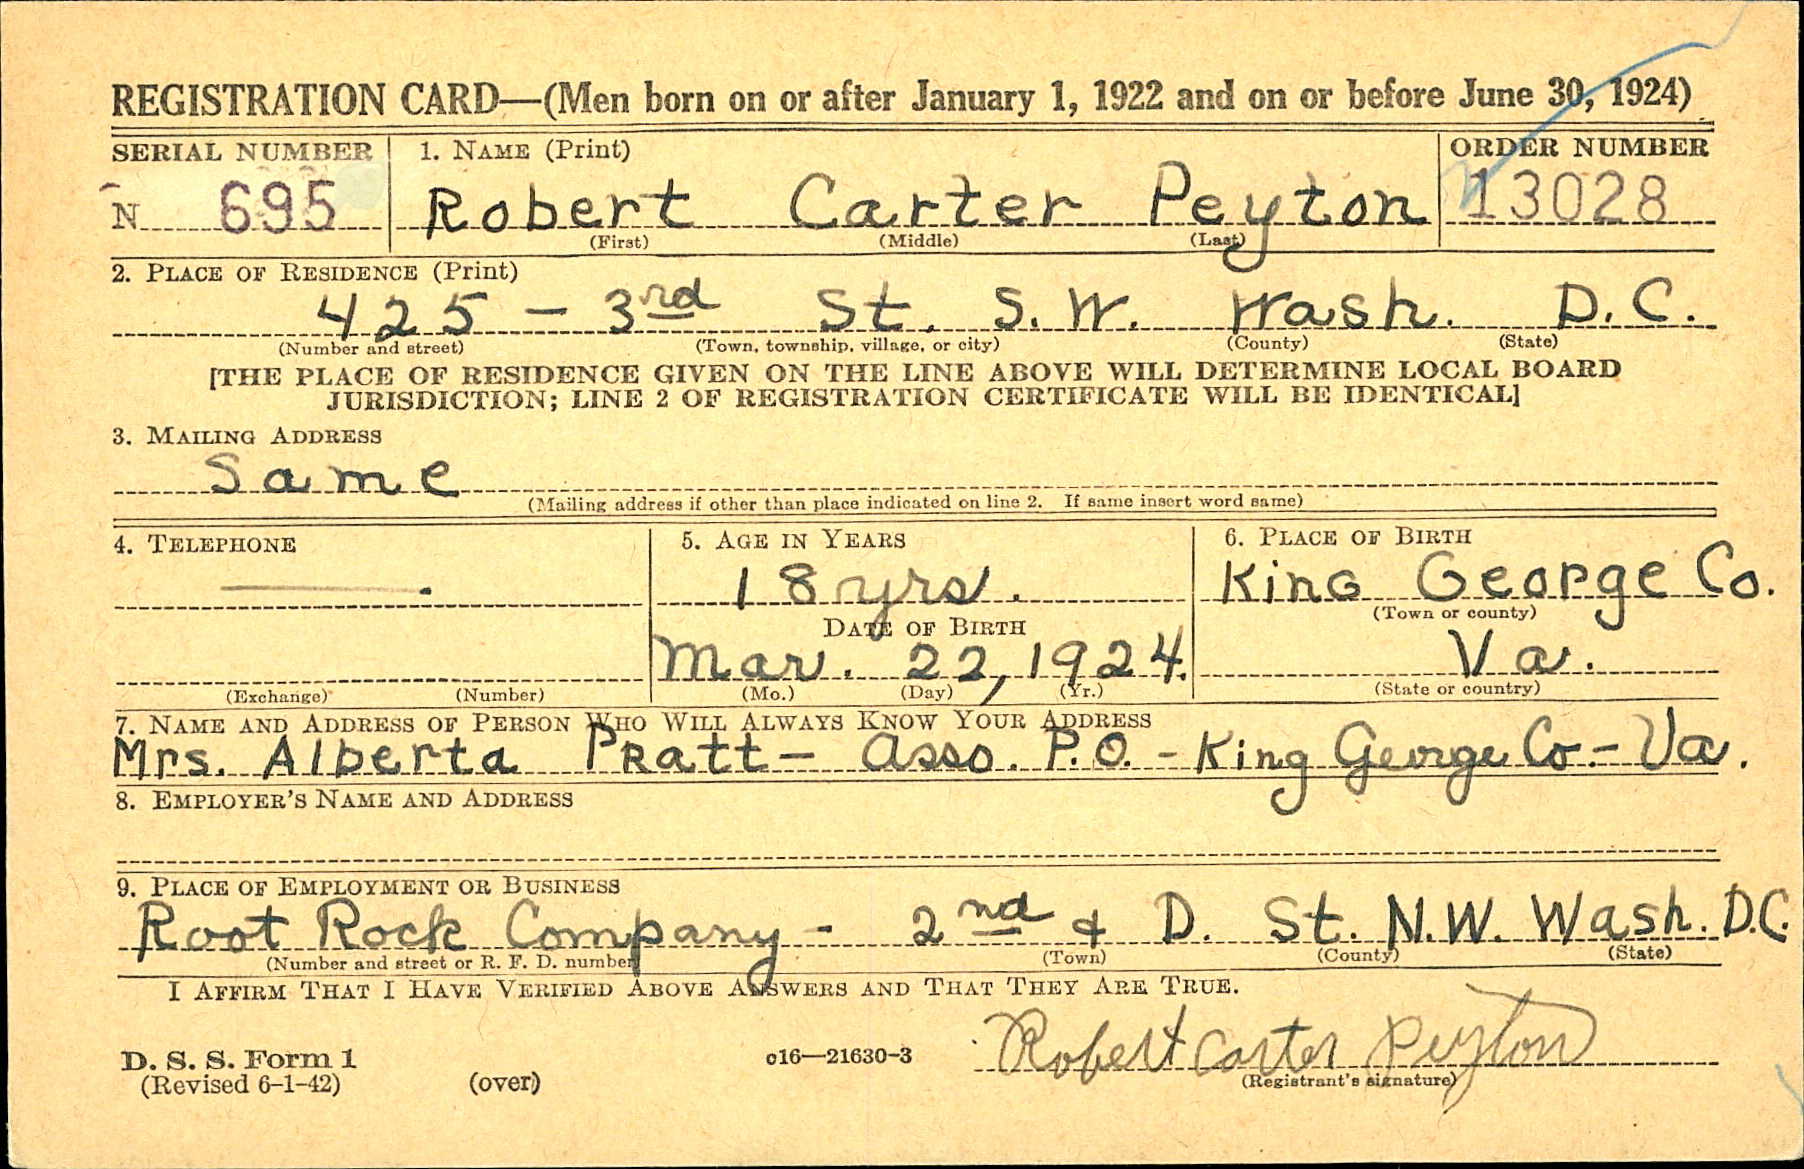 REGISTRATION CARD—(Men born on or after January 1, 1922 and on or before June 30, 1924)
SERIAL NUMBER 1. NAME (Print) ORDER NUMBER
N 695 Robert Carter Peyton 13028
(First) (Middle) (Last)
2. PLACE OF RESIDENCE (Print)
425 - 3rd St. S.W. Wash. D.C.
(Number and street) (Town, township, village, or city) (County) (State)
[THE PLACE OF RESIDENCE GIVEN ON THE LINE ABOVE WILL DETERMINE LOCAL BOARD
JURISDICTION; LINE 2 OF REGISTRATION CERTIFICATE WILL BE IDENTICAL]
3. MAILING ADDRESS
Same
(Mailing address if other than place indicated on line 2. If same insert word same)
4. TELEPHONE 5. AGE IN YEARS 6. PLACE OF BIRTH
— . 18 yrs. King George Co.
(Town or county)
DATE OF BIRTH
Mar. 22, 1924. Va.
(Exchange) (Number) (Mo.) (Day) (Yr.) (State or country)
7. NAME AND ADDRESS OF PERSON WHO WILL ALWAYS KNOW YOUR ADDRESS
Mrs. Alberta Pratt - Asso. P.O. - King George Co. - Va.
8. EMPLOYER'S NAME AND ADDRESS
9. PLACE OF EMPLOYMENT OR BUSINESS
Root Rock Company - 2nd & D. St. N.W. Wash. D.C.
(Number and street or R. F. D. number) (Town) (County) (State)
I AFFIRM THAT I HAVE VERIFIED ABOVE ANSWERS AND THAT THEY ARE TRUE.
D. S. S. Form 1 c16—21630-3 Robert Carter Peyton
(Revised 6-1-42) (over) (Registrant's signature)